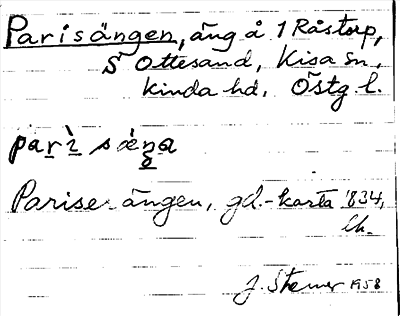 Parisängen, äng å 1 Råstorp,
S Ottesand, Kisa sn,
Kinda hd, Östg l.
parì sæŋa
Parise-ängen, gd.-karta 1834,
Ch.
J. Sterner 1958